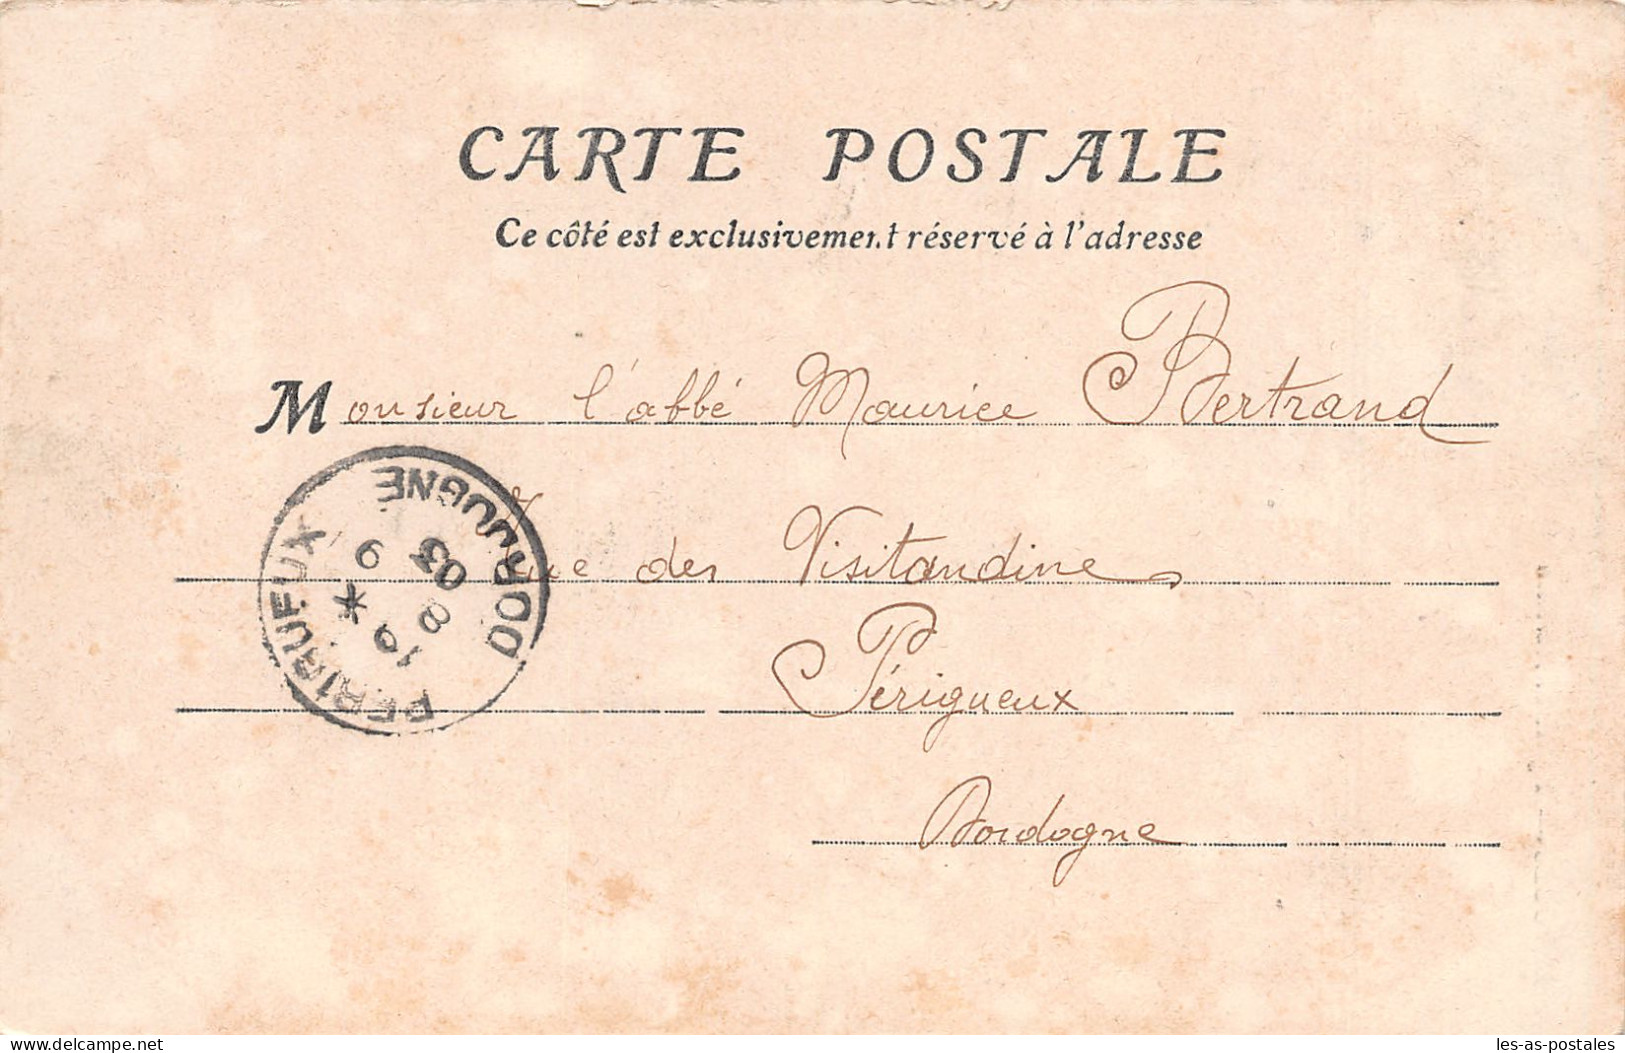 CARTE POSTALE
Ce côté est exclusivement réservé à l'adresse
Monsieur l'abbé Maurice Bertrand
Rue des Visitandines
Périgueux
Dordogne
PERIGUEUX DORDOGNE
03
www.delcampe.net
les-as-postales